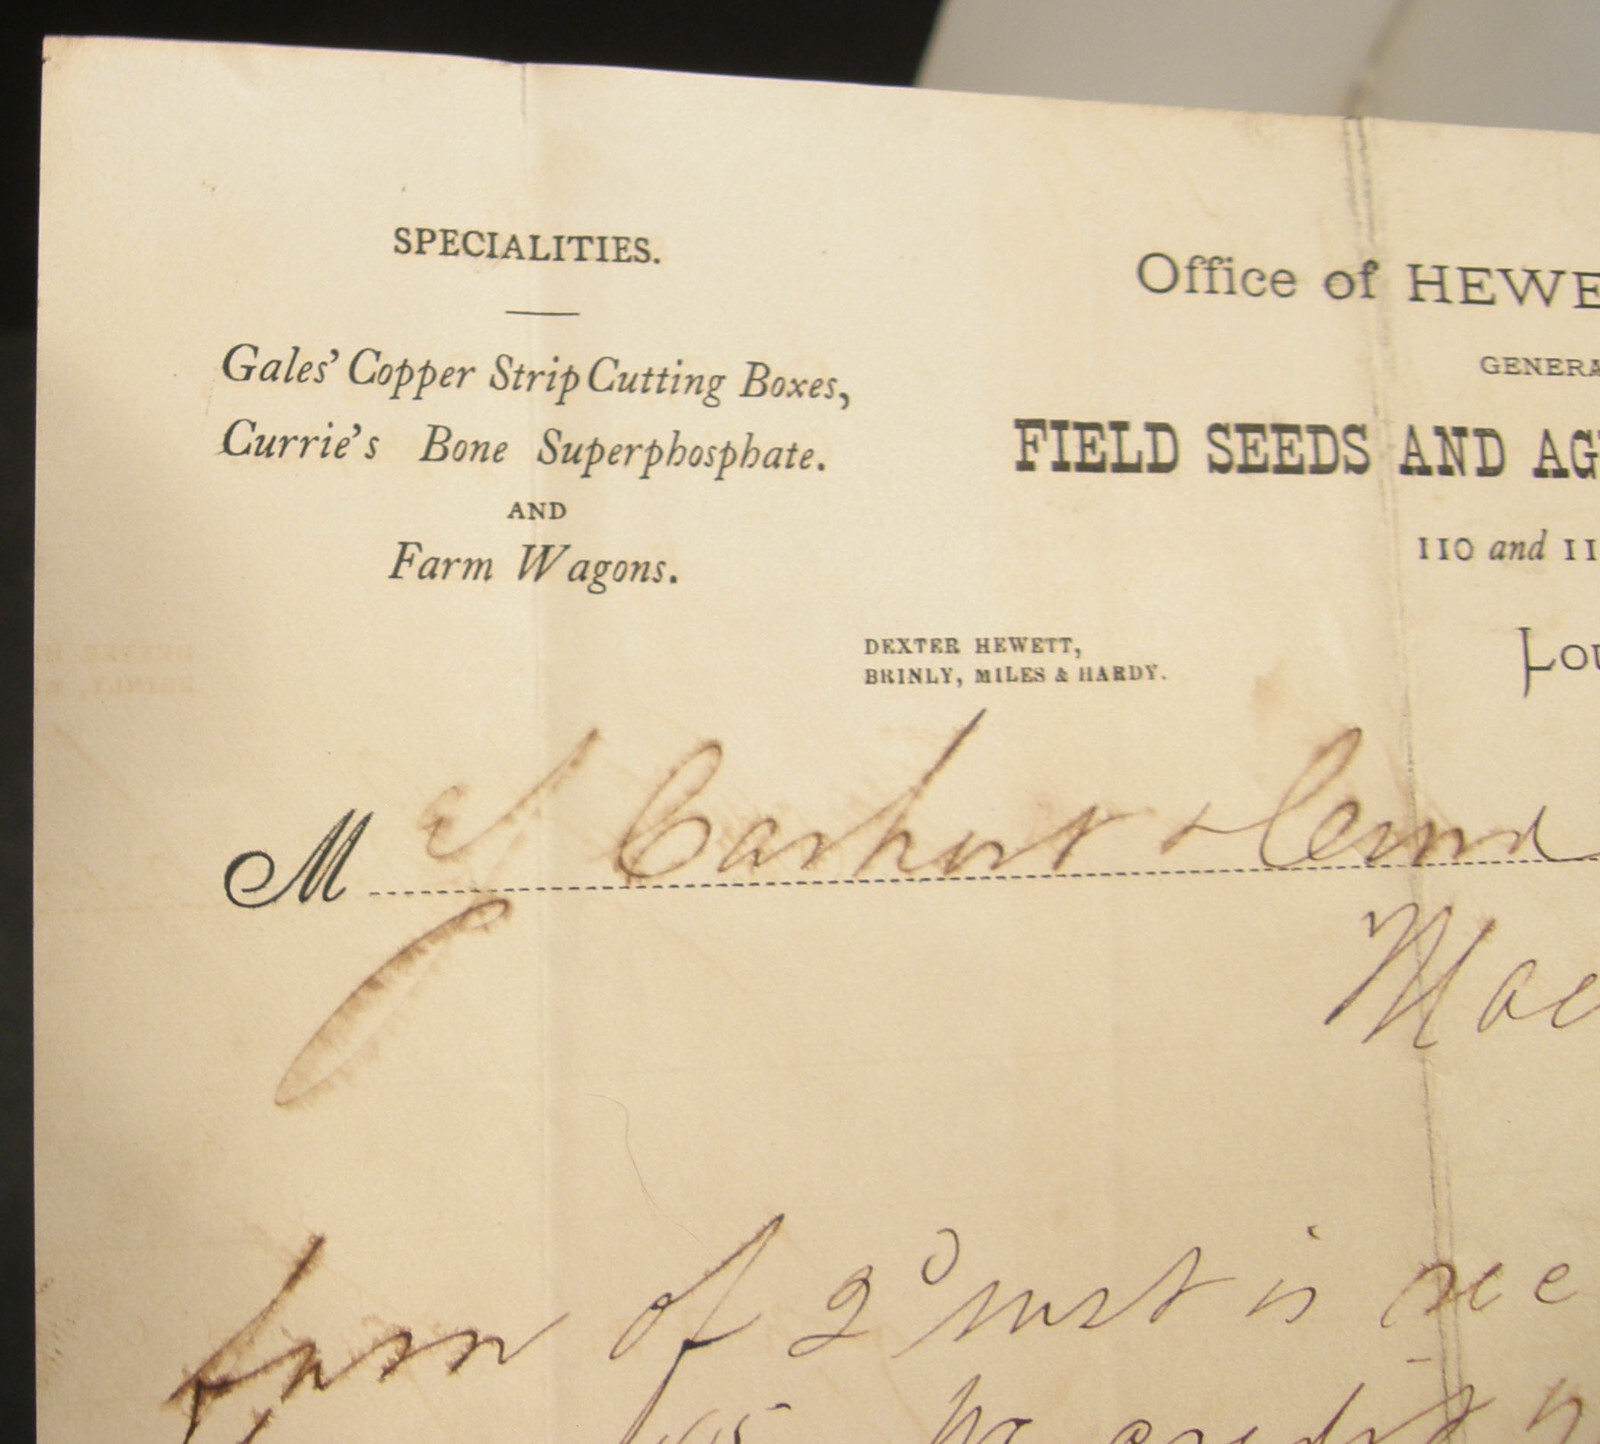 SPECIALITIES.
Gales' Copper Strip Cutting Boxes,
Currie's Bone Superphosphate.
AND
Farm Wagons.
Office of HEWE
GENERA
FIELD SEEDS AND AG
110 and 11
DEXTER HEWETT,
BRINLY, MILES & HARDY.
Lou
M Carhart & Curd
Mac
favor of 2d inst is rec
credit